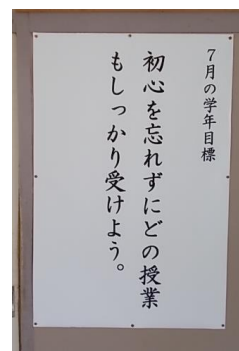 7月の学年目標
初心を忘れずにどの授業
もしっかり受けよう。